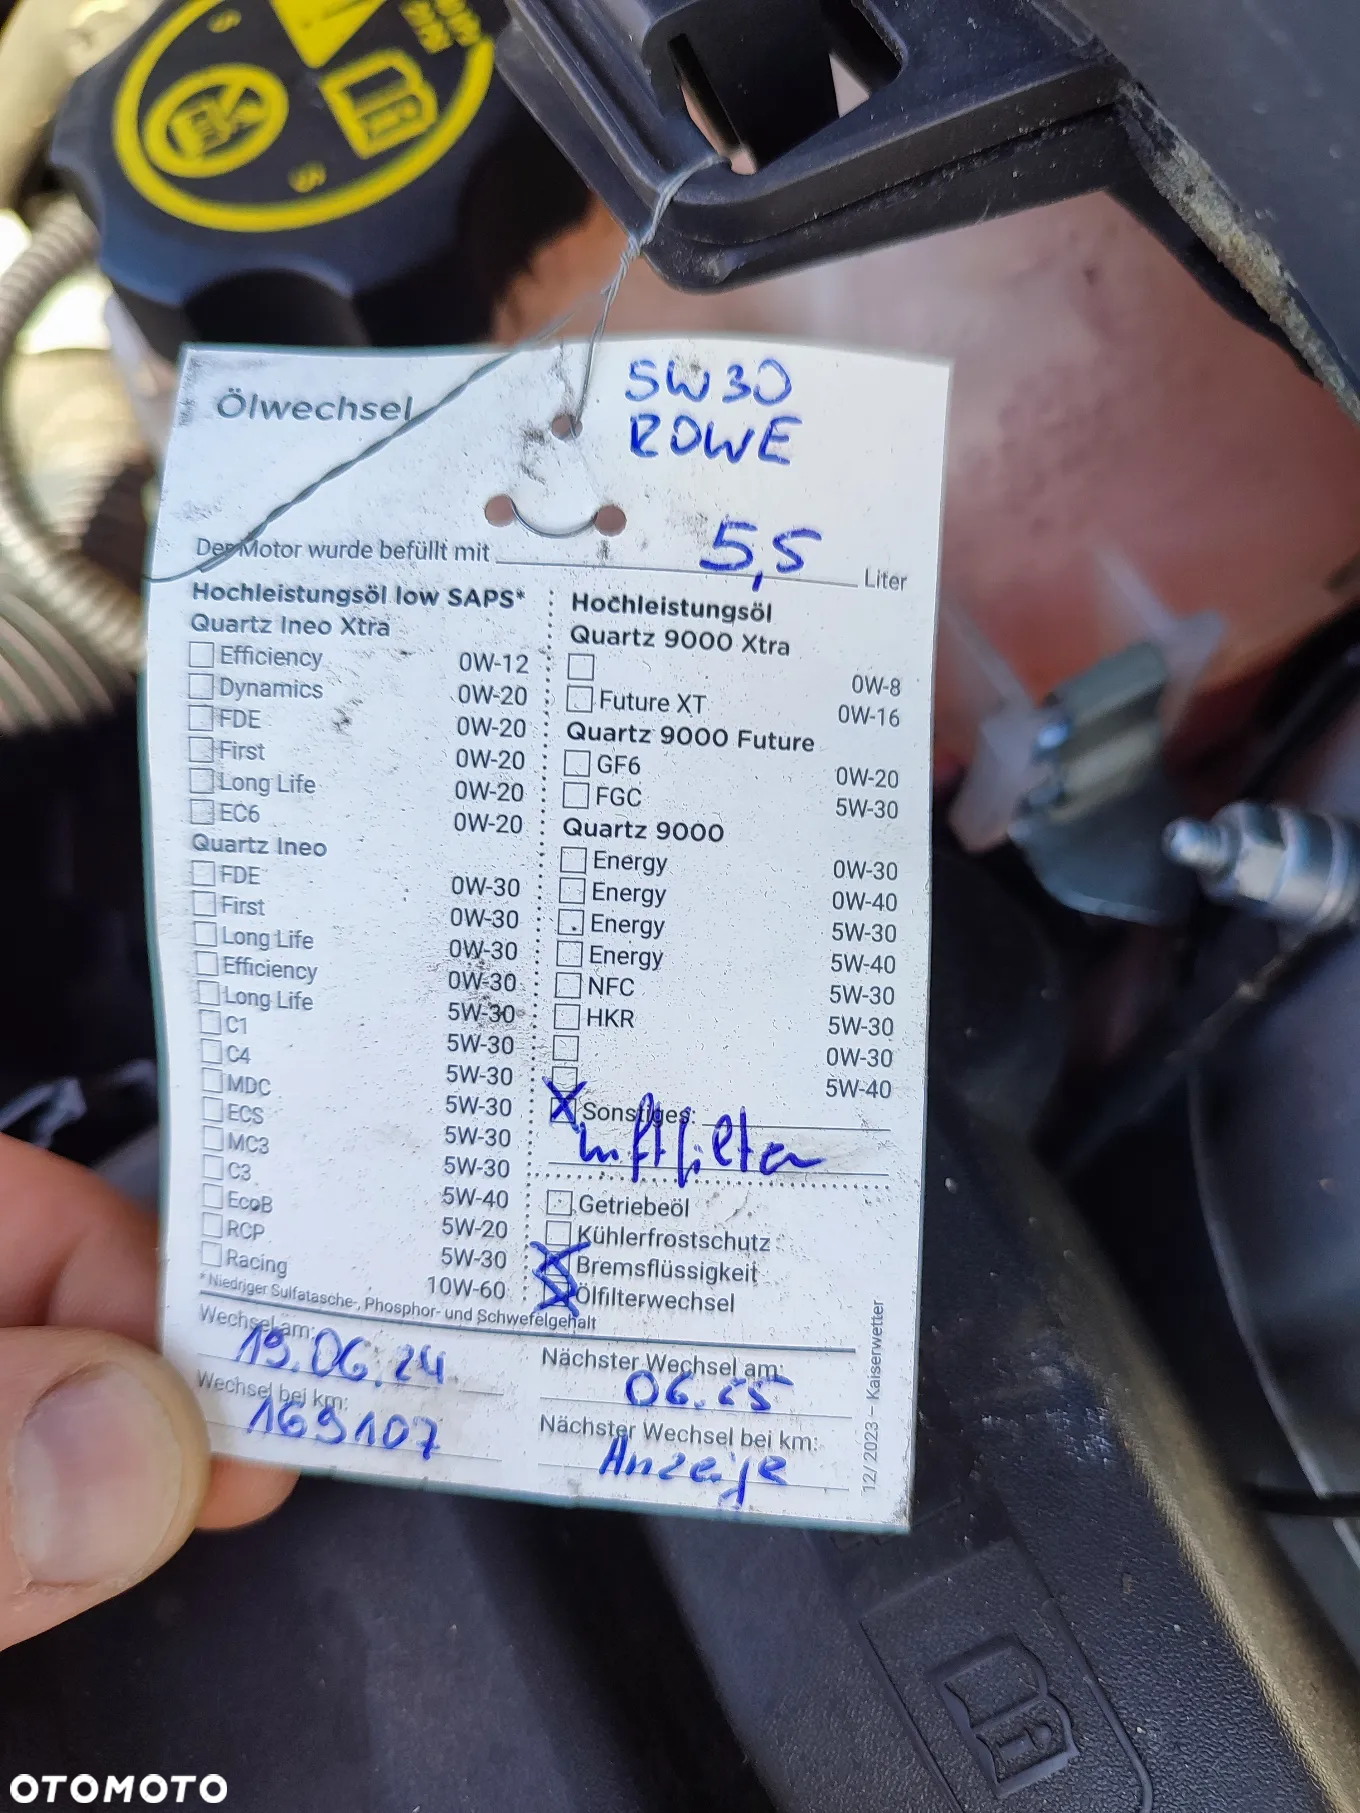 5W30
ROWE
Ölwechsel
Der Motor wurde befüllt mit 5,5 Liter
Hochleistungsöl low SAPS*
Quartz Ineo Xtra
Efficiency 0W-12
Dynamics 0W-20
FDE 0W-20
First 0W-20
Long Life 0W-20
EC6 0W-20
Quartz Ineo
FDE 0W-30
First 0W-30
Long Life 0W-30
Efficiency 0W-30
Long Life 5W-30
C1 5W-30
C4 5W-30
MDC 5W-30
ECS 5W-30
MC3 5W-30
C3 5W-40
EcoB 5W-20
RCP 5W-30
Racing 10W-60
*Niedriger Sulfatasche-, Phosphor- und Schwefelgehalt
Hochleistungsöl
Quartz 9000 Xtra
0W-8
Future XT 0W-16
Quartz 9000 Future
GF6 0W-20
FGC 5W-30
Quartz 9000
Energy 0W-30
Energy 0W-40
Energy 5W-30
Energy 5W-40
NFC 5W-30
HKR 5W-30
0W-30
5W-40
X Sonstiges:
Luftfilter
Getriebeöl
Kühlerfrostschutz
X Bremsflüssigkeit
X Ölfilterwechsel
Wechsel am:
19.06.24
Wechsel bei km:
169107
Nächster Wechsel am:
06.25
Nächster Wechsel bei km:
Anzeige
12/2023 – Kaiserwetter
OTOMOTO